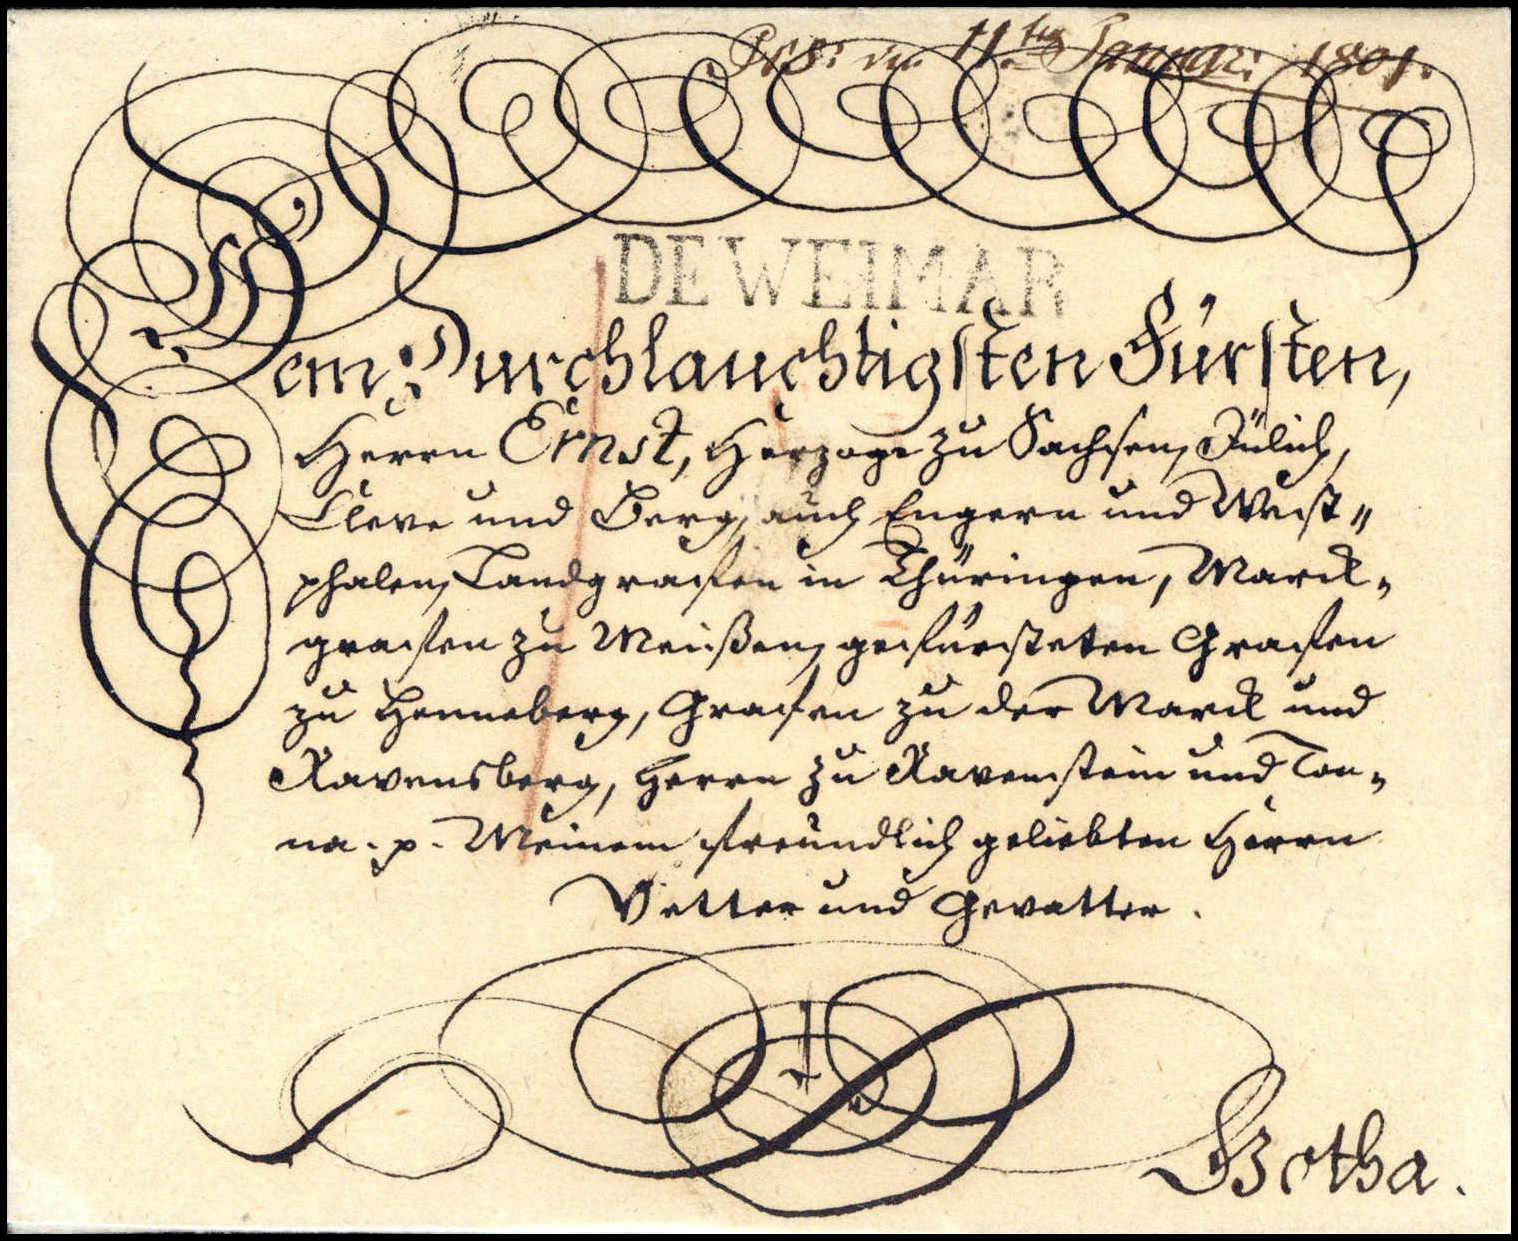 Prs: den 11ten Januar: 1801.
DE WEIMAR
Dem Durchlauchtigsten Fürsten,
Herrn Ernst, Herzoge zu Sachsen, Jülich,
Cleve und Berg, auch Engern und West-
phalen, Landgrafen in Thüringen, Marck-
grafen zu Meißen, gefürsteten Grafen
zu Henneberg, Grafen zu der Marck und
Ravensberg, Herrn zu Ravenstein und Ton-
na. p. Meinem freundlich geliebten Herrn
Vetter und Gevatter.
Gotha.